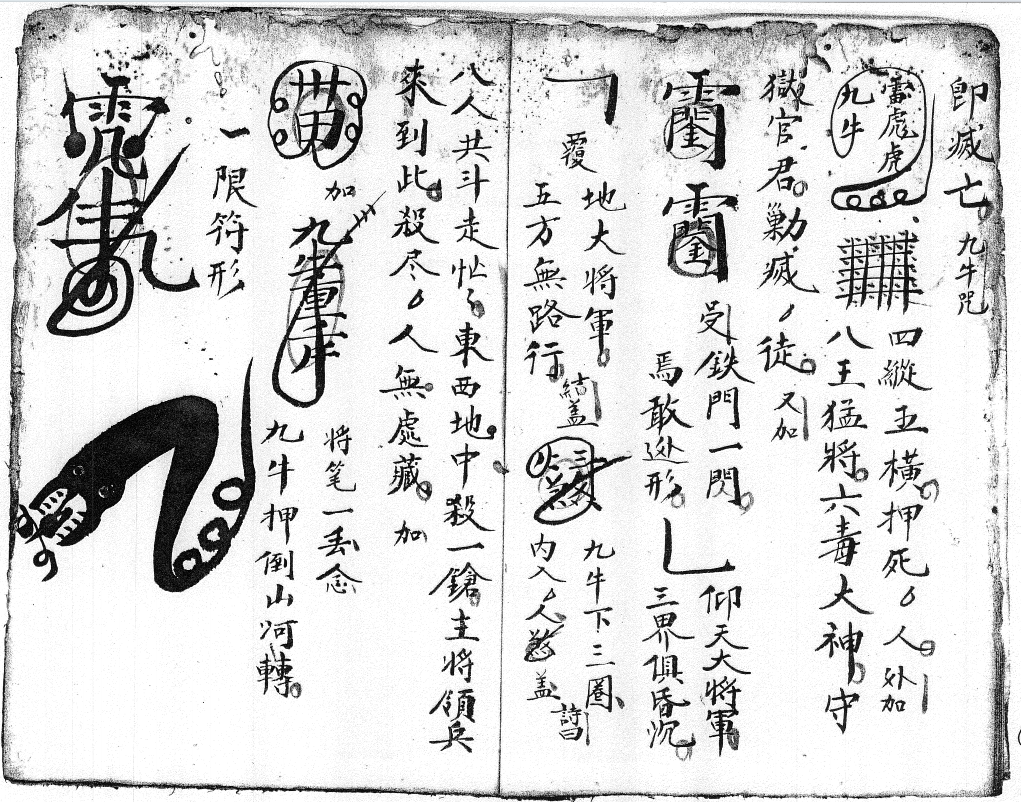 即滅亡 九牛咒
雷 虎 九牛
四縱五橫押死〻人 外加
八王猛將六毒大神守
獄官君勅滅〻徒 又加
受鉄門一閃 仰天大將軍
焉敢遊形 三界俱昏沉
覆地大將軍 結盖 九牛下三圈
五方無路行 内入〻人 盖 詩曰
八人共斗走忙〻東西地中殺一鎗主將領兵
來到此殺尽〻人無處藏 加
加 九牛
將笔一丢念
九牛押倒山河轉
一限符形